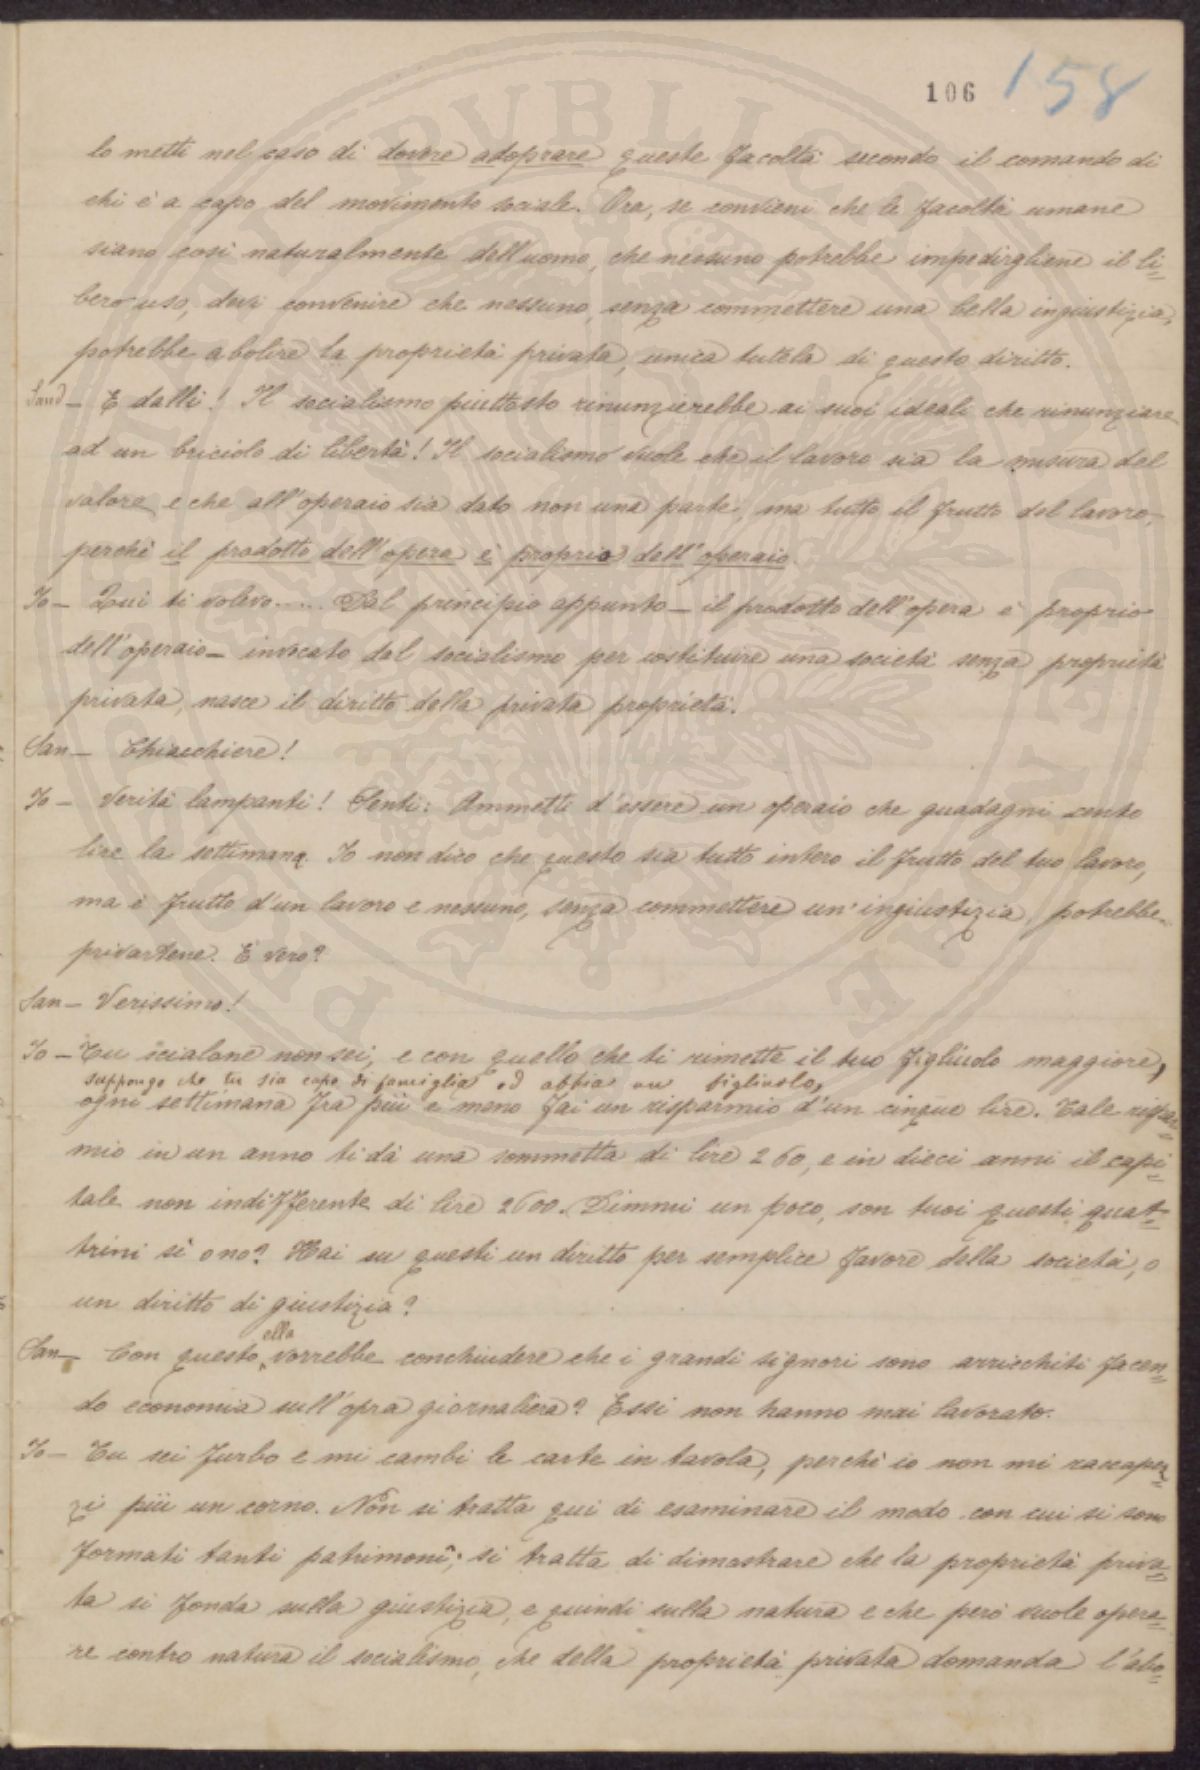 106 158
lo metti nel caso di dovere adoprare queste facoltà secondo il comando di
chi è a capo del movimento sociale. Ora, se convieni che le facoltà umane
siano così naturalmente dell'uomo, che nessuno potrebbe impedirgliene il li=
bero uso, devi convenire che nessuno, senza commettere una bella ingiustizia,
potrebbe abolire la proprietà privata, unica tutela di questo diritto.
Sand - E dalli! Il socialismo piuttosto rinunzierebbe ai suoi ideali che rinunziare
ad un briciolo di libertà! Il socialismo vuole che il lavoro sia la misura del
valore e che all'operaio sia dato non una parte, ma tutto il frutto del lavoro,
perchè il prodotto dell'opera è proprio dell'operaio.
Io - Qui ti volevo..... Dal principio appunto - il prodotto dell'opera è proprio
dell'operaio - invocato dal socialismo per costituire una società senza proprietà
privata, nasce il diritto della privata proprietà.
San - Chiacchiere!
Io - Verità lampanti! Senti: Ammetti d'essere un operaio che guadagni cento
lire la settimana. Io non dico che questo sia tutto intero il frutto del tuo lavoro,
ma è frutto d'un lavoro e nessuno, senza commettere un'ingiustizia, potrebbe
privartene. È vero?
San - Verissimo!
Io - Tu scialone non sei, e con quello che ti rimette il tuo figliuolo maggiore,
suppongo che tu sia capo di famiglia ed abbia un figliuolo,
ogni settimana fra più e meno fai un risparmio d'un cinque lire. Tale rispar=
mio in un anno ti dà una sommetta di lire 260, e in dieci anni il capi=
tale non indifferente di lire 2600. Dimmi un poco, son tuoi questi quat=
trini sì o no? Hai su questi un diritto per semplice favore della società, o
un diritto di giustizia?
San - Con questo ella vorrebbe conchiudere che i grandi signori sono arricchiti facen=
do economia sull'opra giornaliera? Essi non hanno mai lavorato.
Io - Tu sei furbo e mi cambi le carte in tavola, perchè io non mi raccapez=
zi più un corno. Non si tratta qui di esaminare il modo con cui si sono
formati tanti patrimonî; si tratta di dimostrare che la proprietà priva=
ta si fonda sulla giustizia, e quindi sulla natura e che però vuole opera=
re contro natura il socialismo, che della proprietà privata domanda l'abo=